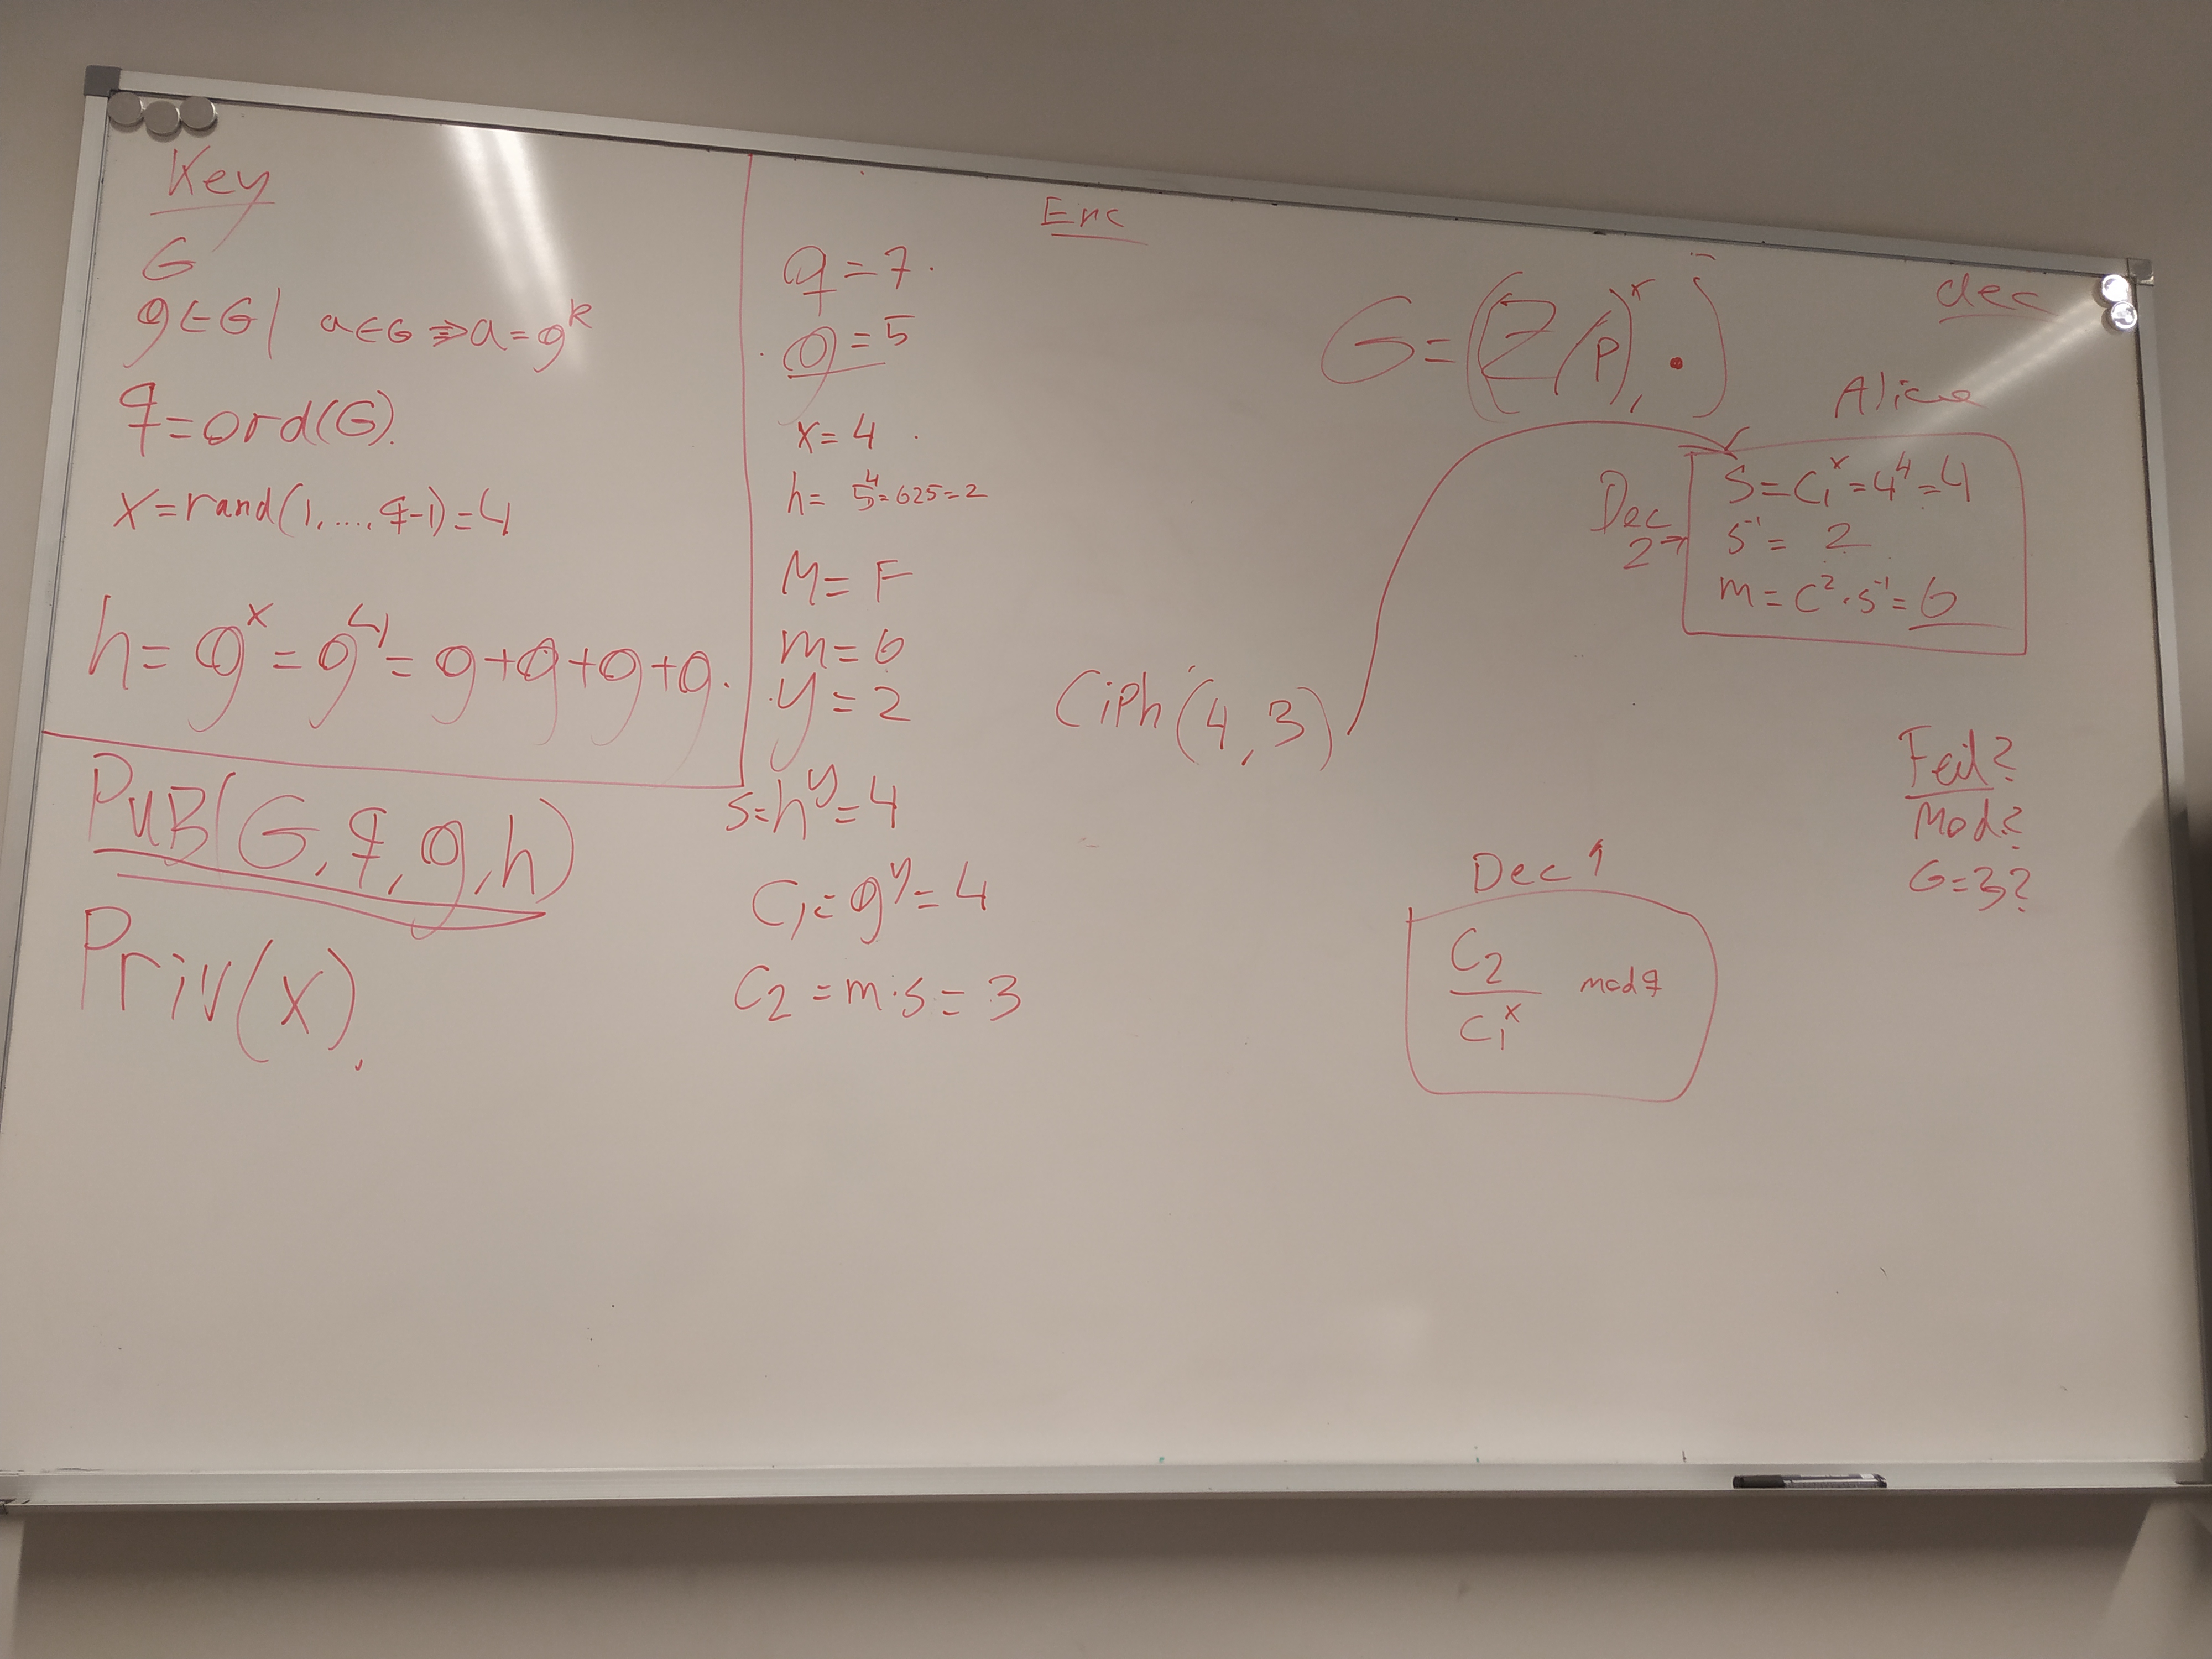 Key
G
g∈G | a∈G ⇒ a=g^k
q=ord(G).
x=rand(1,...,q-1)=4
h=g^x=g^4=g+g+g+g.
PUB(G,q,g,h)
Priv(x).
Enc
q=7.
g=5
x=4.
h=5^4=625=2
M=F
m=6
y=2
s=h^y=4
C₁=g^y=4
C₂=m·s=3
Ciph(4,3)
G=((Z/p)^x,·)
dec
Alice
Dec 2→
s=C₁^x=4^4=4
s^-1=2
m=C^2·s^-1=6
Dec 1
C₂/C₁^x mod q
Feil?
Mod?
G=3?